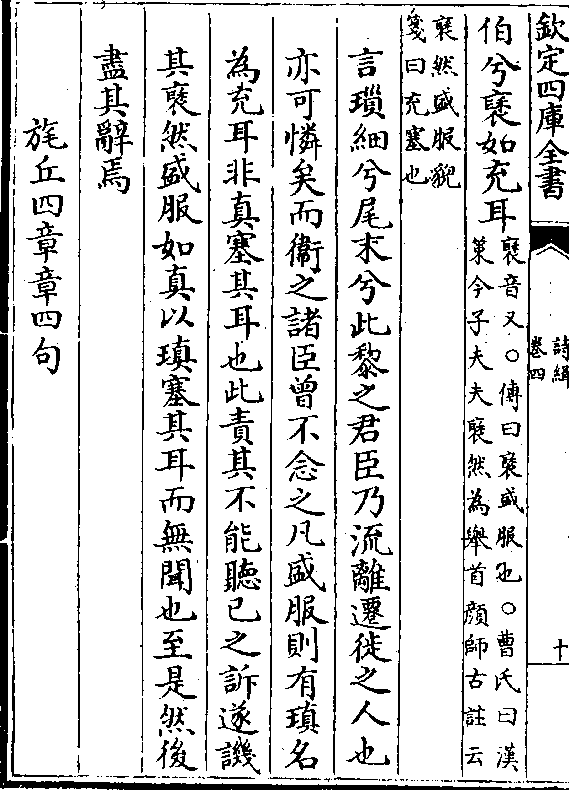 欽定四庫全書
詩緝
卷四
十
伯兮褎如充耳
褎音又○傳曰褎盛服也○曹氏曰漢
策今子大夫褎然為舉首顔師古註云
褎然盛服貌
箋曰充塞也
言瑣細兮尾末兮此黎之君臣乃流離遷徙之人也
亦可憐矣而衞之諸臣曾不念之凡盛服則有瑱名
為充耳非真塞其耳也此責其不能聽已之訴遂譏
其褎然盛服如真以瑱塞其耳而無聞也至是然後
盡其辭焉
旄丘四章章四句